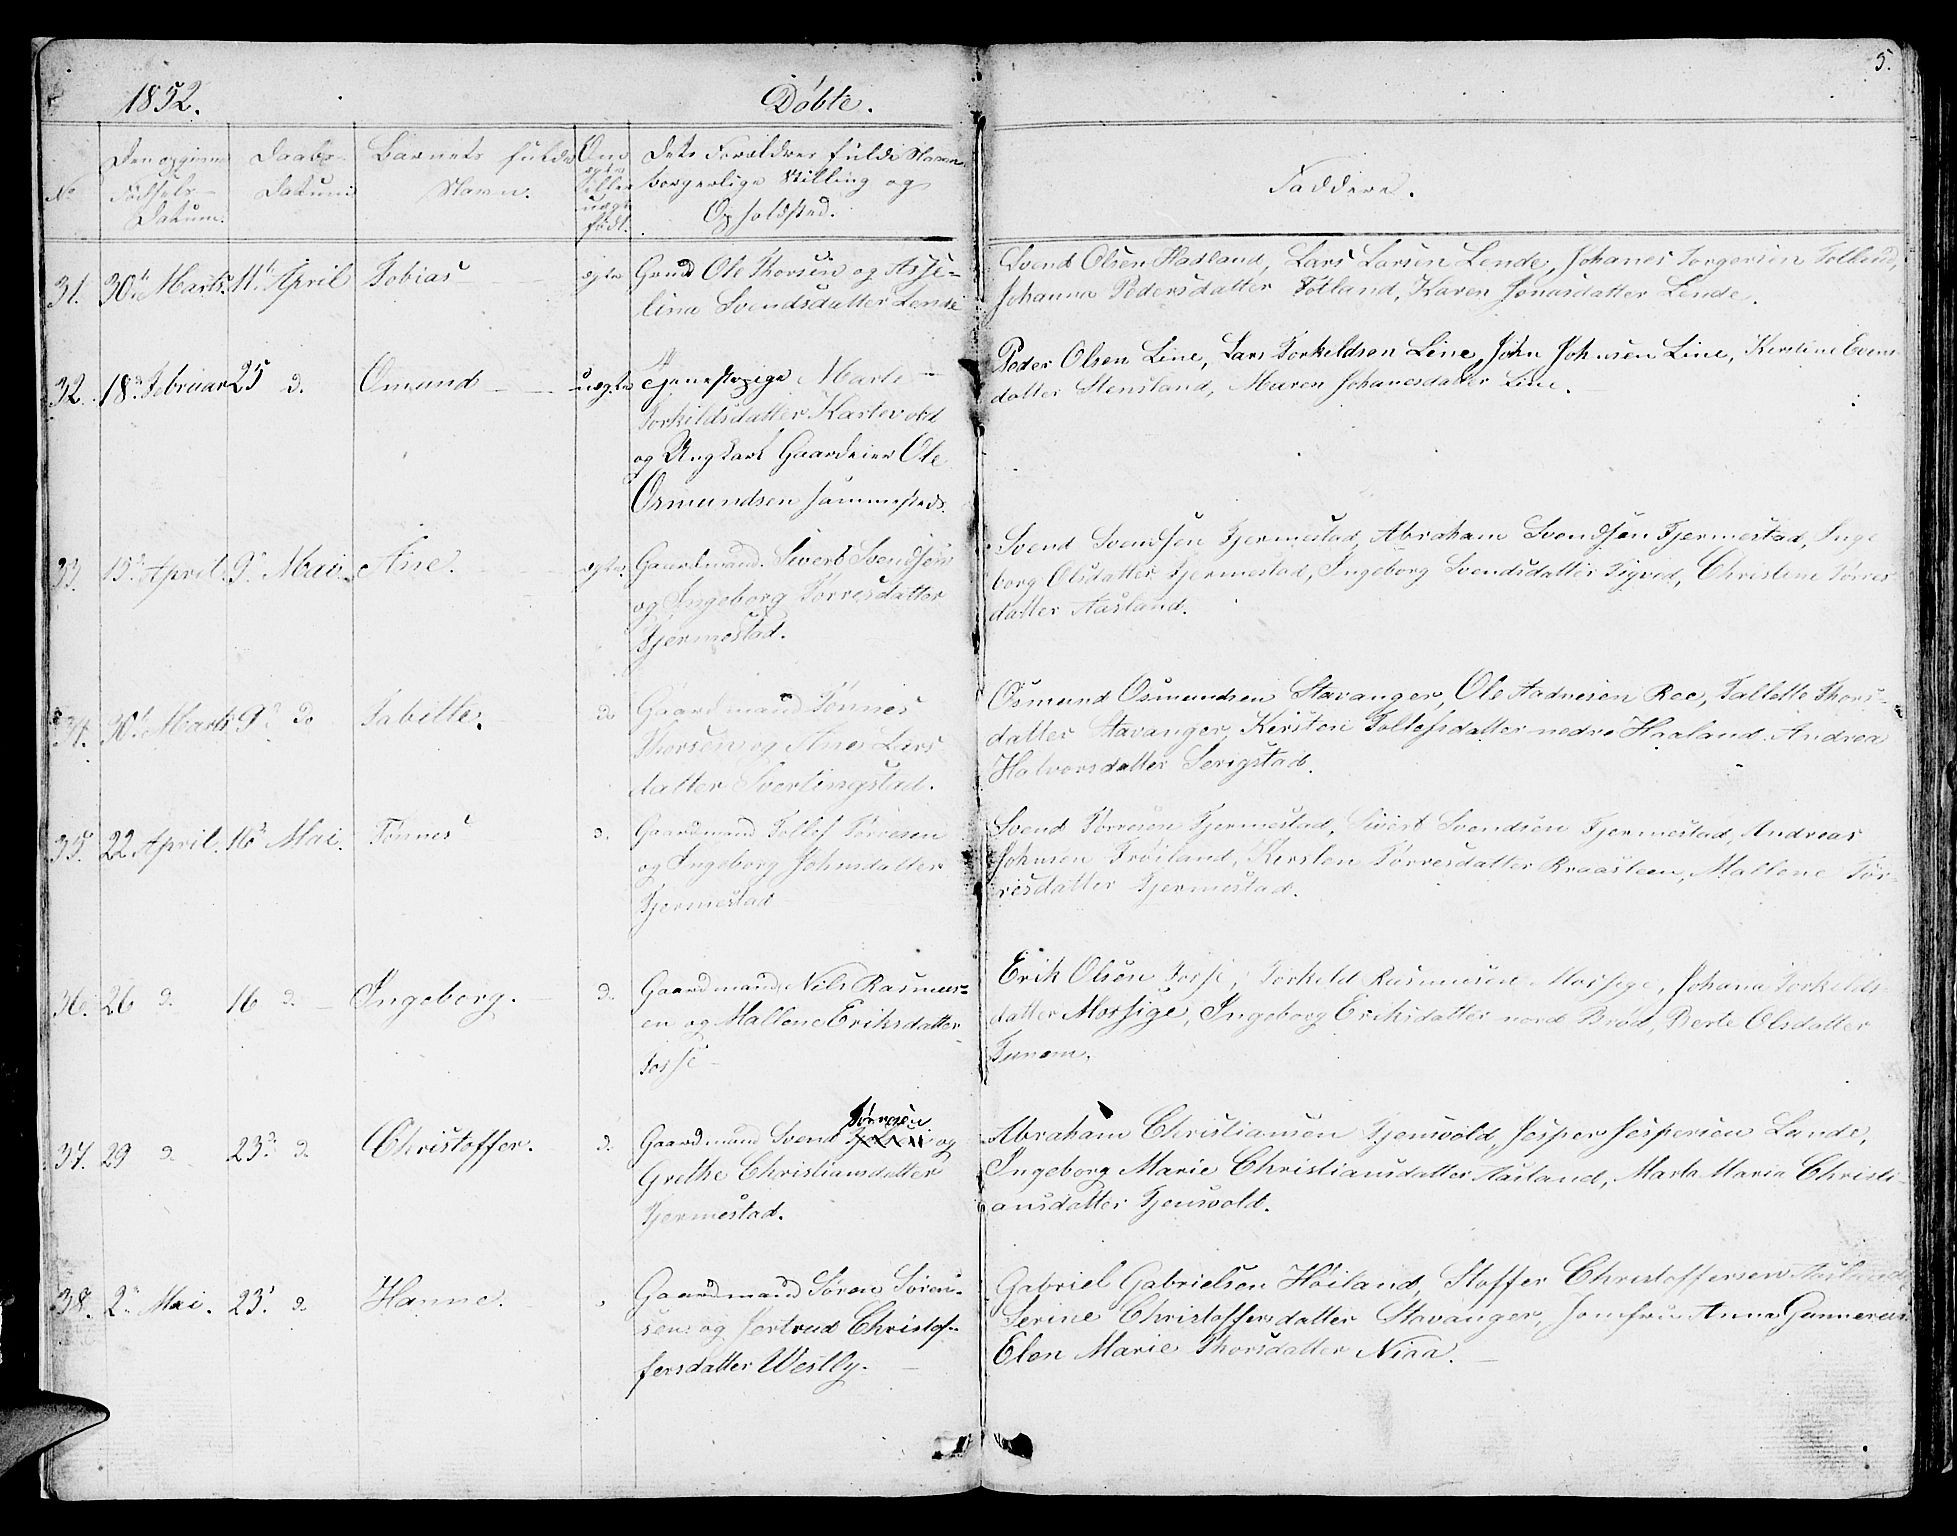 5.
1852. Døbte.
No Den opgivne Fødsels-Datum. Daabs-Datum Barnets fulde Navn. Om ægte eller uægte født. Dets Forældres fulde Navn borgerlige Stilling og Opholdsted. Faddere.
31. 30te Marts. 11te April Tobias ægte Gmd Ole Thorsen og Asse-
lina Svendsdatter Lende
Svend Olsen Hadland, Lars Larsen Lende, Johanes Torgersen Totland,
Johanna Pedersdatter Totland, Karen Jonasdatter Lende.
32. 18de Februar 25 d. Omund uægte Tjenestepige Marte
Torkildsdatter
og Ungkarl Gaardeier Ole
Osmundsen sammesteds.
Peder Olsen Line, Lars Torkeldsen Line, John Johnsen Line, Kirstine Evens-
datter Stensland, Maren Johanesdatter Line.
33. 15de April. 9de Mai. Ane. ægte. Gaardmand Sivert Svendsen
og Ingeborg Tørresdatter
Tjermestad.
Svend Svendsen Tjermestad, Abraham Svendsen Tjermestad, Inge
borg Olsdatter Tjermestad, Ingeborg Svendsdatter Tigved, Christine Tørres
datter Aasland.
34. 30te Marts 9de do Tabitte. do Gaardmand Tønnes
Thorsen og Ane Lars
datter Svertingstad.
Osmund Osmundsen Stavanger, Ole Aadnesen Roe, Tallette Thors-
datter Stavanger, Kirsten Tollefsdatter nedre Haaland. Andrea
Halvorsdatter Serigstad.
35. 22 April. 16de Mai. Tønnes d. Gaardmand Tollef Tørresen
og Ingeborg Johnsdatter
Tjermestad
Svend Tørresen Tjermestad, Sivert Svendsen Tjermestad, Andreas
Johnsen Frøiland, Kirsten Tørresdatter Braasteen, Mallene Tør-
resdatter Tjermestad.
36. 26 d. 16 d. Ingeborg. d. Gaardmand Nils Rasmus-
en og Mallene Eriksdatter
Fosse
Erik Olsen Fosse, Torkild Rasmusen Mossige, Johana Torkilds-
datter Mossige, Ingeborg Eriksdatter nord Brød, Berte Olsdatter
Tunem.
37. 29 d. 23de d. Christoffer. d. Gaardmand Svend Tørresen og
Grethe Christiansdatter
Tjermestad.
Abraham Christiansen Tjensvold, Jesper Jespersen Lunde,
Ingeborg Marie Christiansdatter Aasland, Marta Maria Christi-
ansdatter Tjensvold.
38. 2den Mai. 23de d. Hanne. Gaardmand Søren Søren-
sen og Jertrud Christof-
fersdatter Westly.
Gabriel Gabrielsen Høiland, Stoffer Christoffersen Aasland,
Serine Christoffersdatter Stavanger, Jomfru Anna Gunnersen
Elen Marie Thorsdatter Niaa.